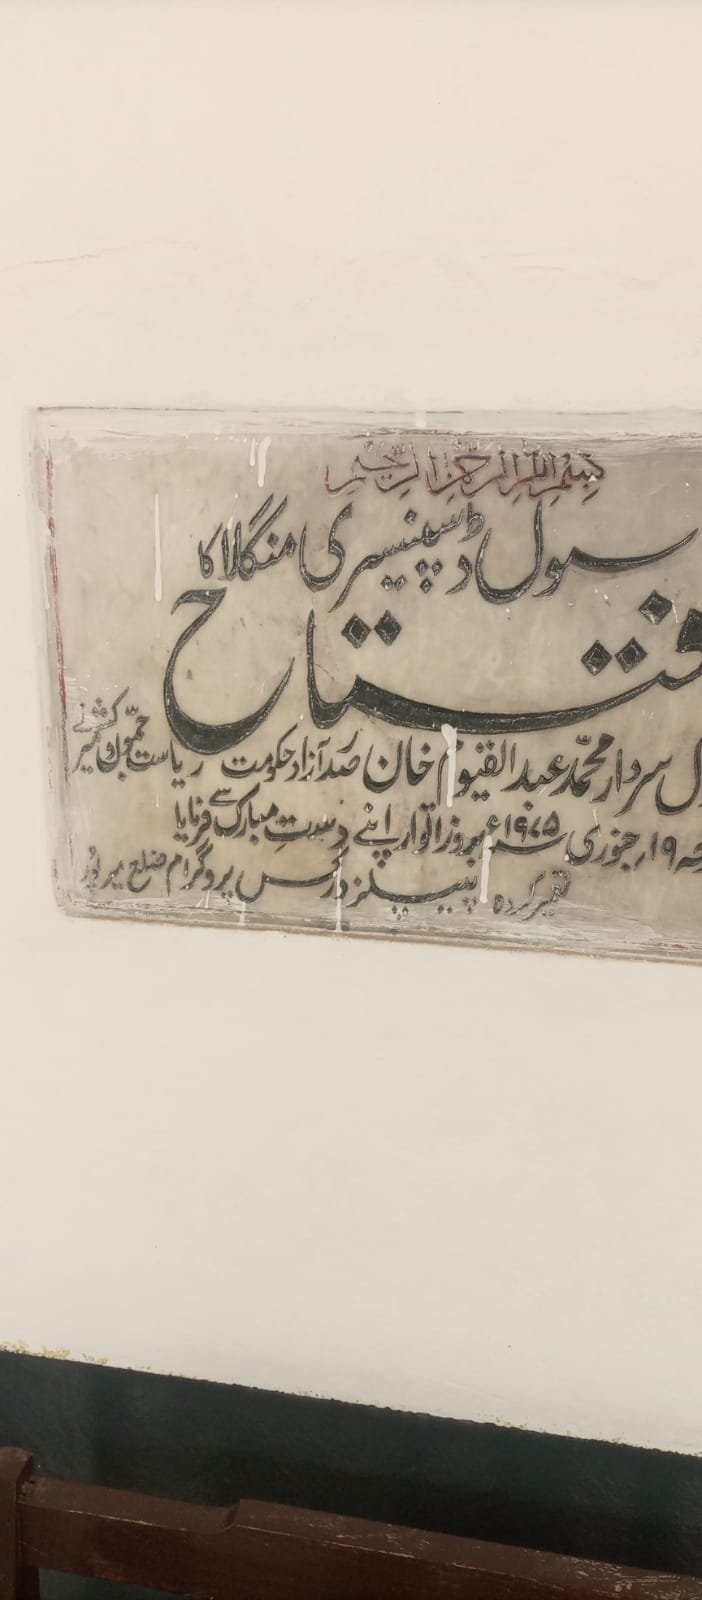 بسم اللہ الرحمٰن الرحیم
سول ڈسپنسری منگلا کا
فتتاح
سردار محمّد عبد القیوم خان صدر آزاد حکومت ریاست جمّوں و کشمیر نے
۱۹ جنوری ۱۹۷۵ء بروز اتوار اپنے دستِ مبارک سے فرمایا
تعمیر کردہ پیپلز ورکس پروگرام ضلع میر پور